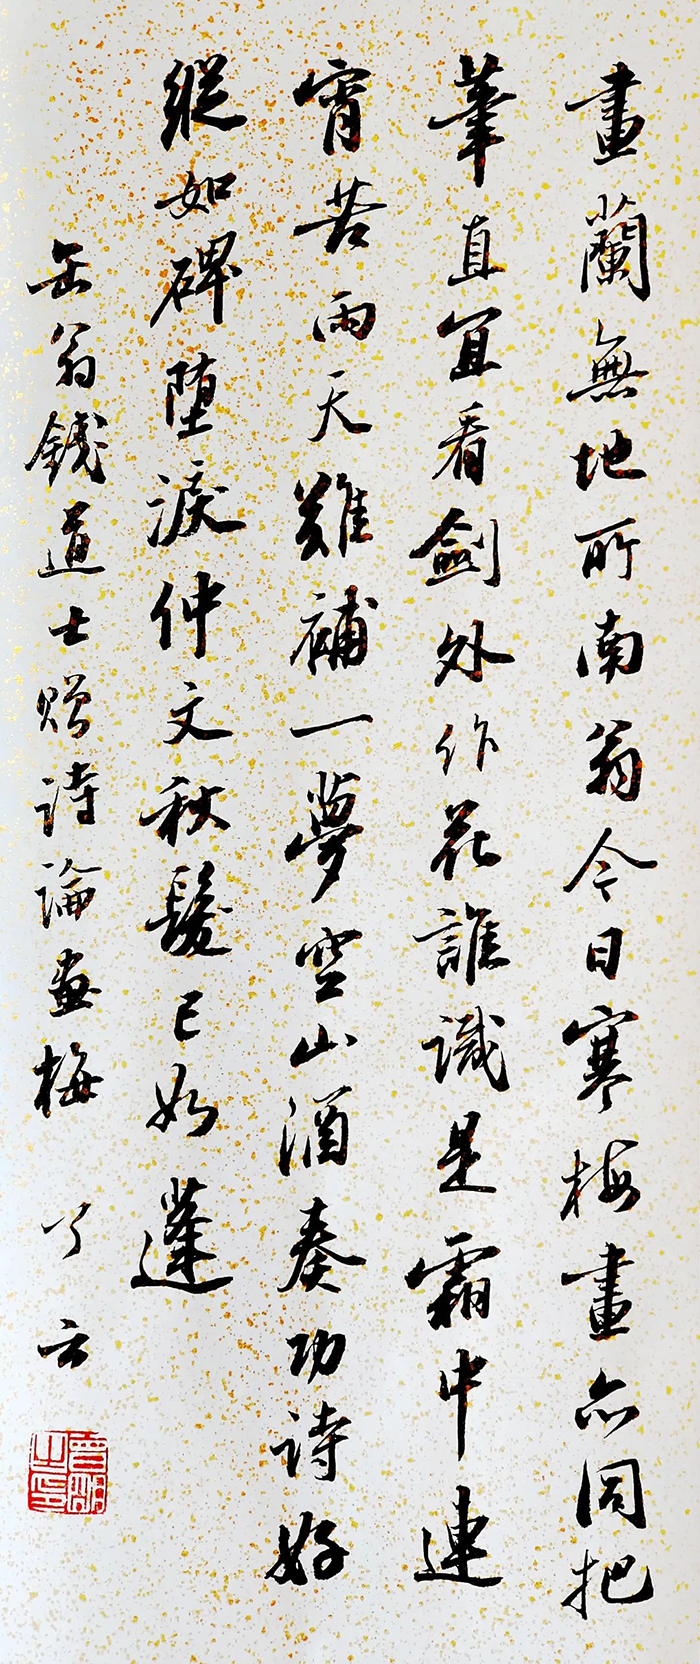 畫蘭無地所南翁今日寒梅畫亦同把
筆直宜看劍外作花誰識是霜中連
宵苦雨天難補一夢空山酒奏功詩好
縱如碑墮淚仲文秋鬢已如蓬
缶翁錢道士贈詩論畫梅 了云